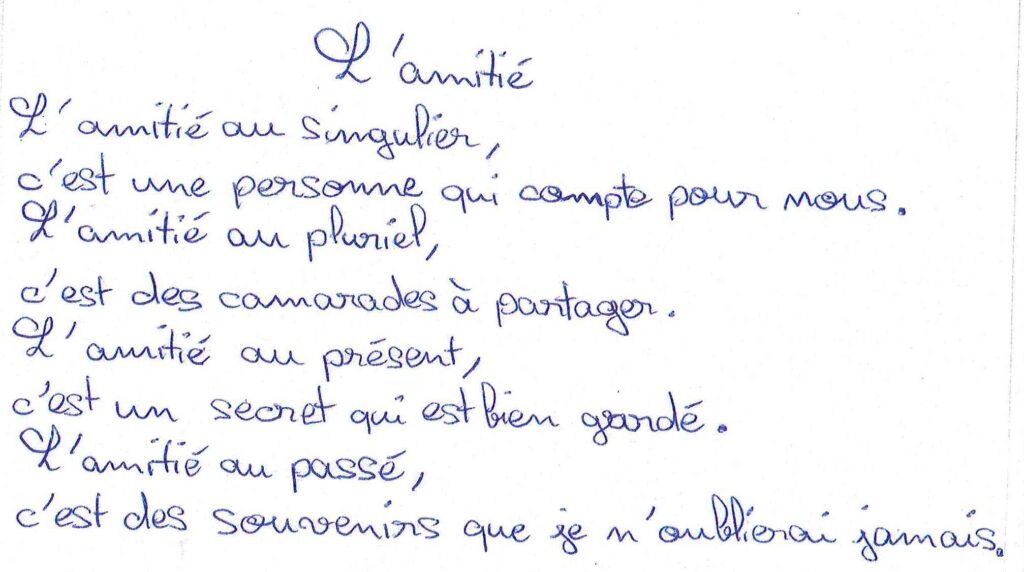 L'amitié
L'amitié au singulier,
c'est une personne qui compte pour nous.
L'amitié au pluriel,
c'est des camarades à partager.
L'amitié au présent,
c'est un secret qui est bien gardé.
L'amitié au passé,
c'est des souvenirs que je n'oublierai jamais.